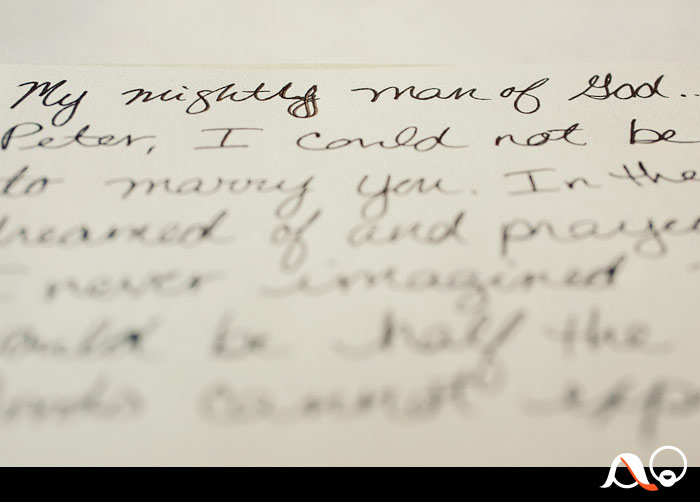 My mightly man of God..
Peter, I could not be
to marry you. In the
dreamed of and prayer
I never imagined
ould be half the
cannot exp